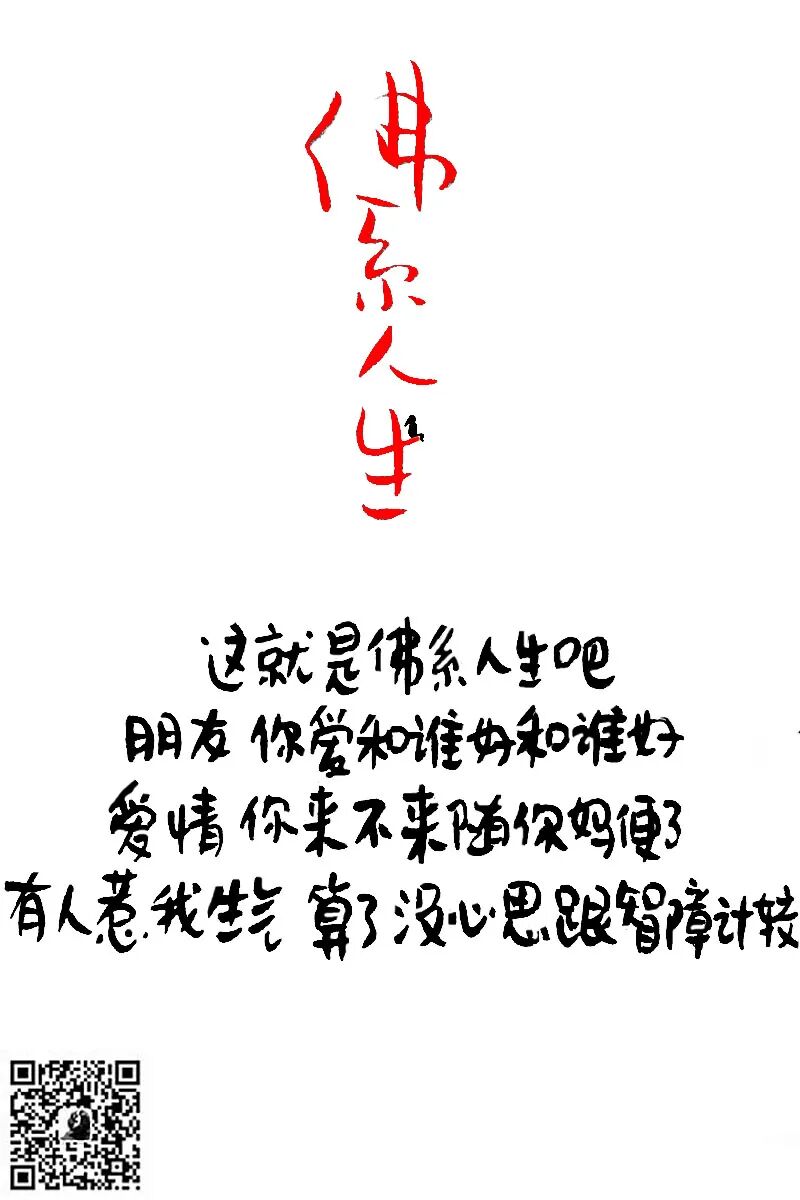 佛系人生
这就是佛系人生吧
朋友 你爱和谁好和谁好
爱情 你来不来随你妈便了
有人惹我生气 算了没心思跟智障计较